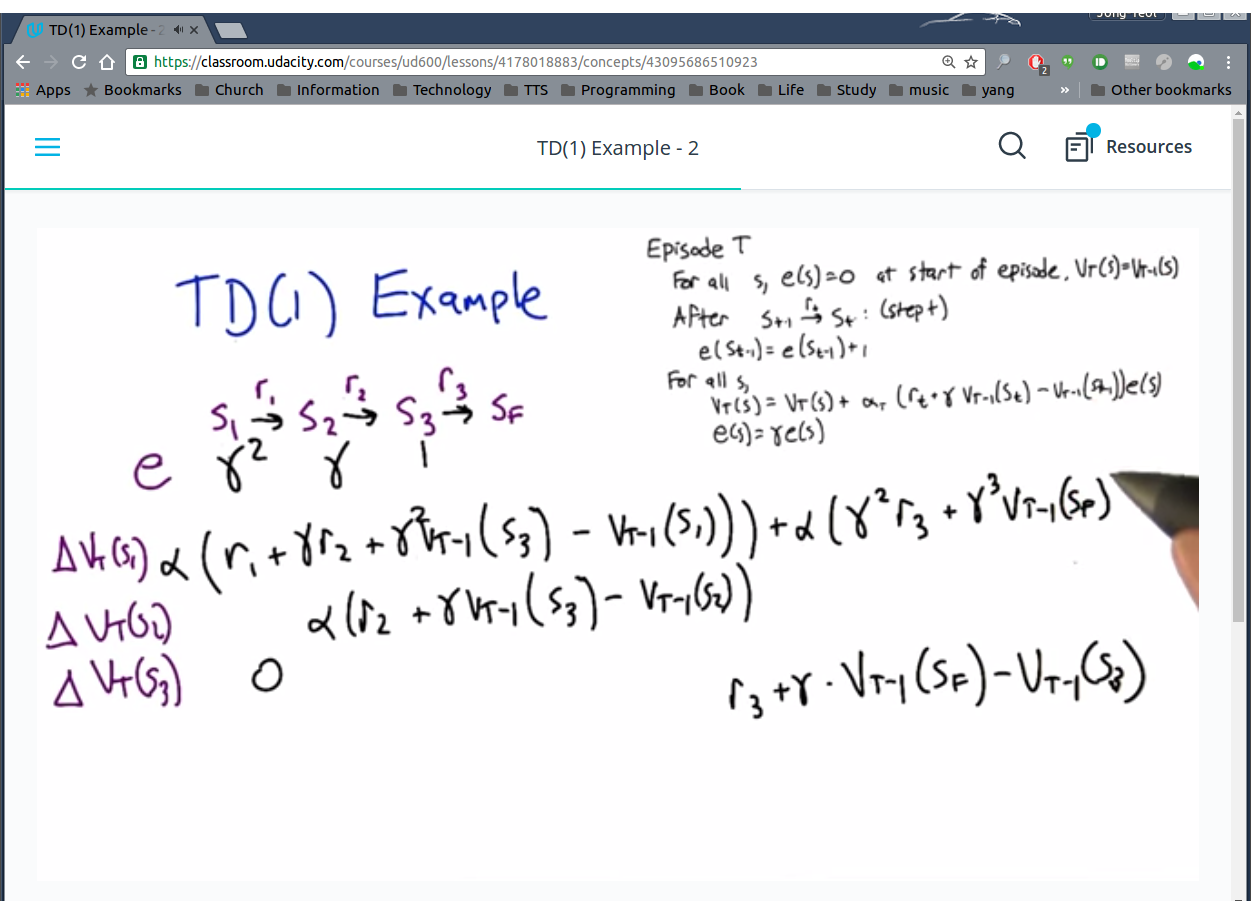 TD(1) Example - 2
Jong Yeol
https://classroom.udacity.com/courses/ud600/lessons/4178018883/concepts/43095686510923
2
Apps Bookmarks Church Information Technology TTS Programming Book Life Study music yang » Other bookmarks
TD(1) Example - 2
Resources
TD(1) Example
Episode T
For all s, e(s)=0 at start of episode, V_T(s)=V_{T-1}(s)
After S_{t-1} →^{r_t} S_t: (step t)
e(S_{t-1})=e(S_{t-1})+1
For all s,
V_T(s)=V_T(s)+α_T(r_t+γ V_{T-1}(S_t)-V_{T-1}(S_{t-1}))e(s)
e(s)=γe(s)
S_1 →^{r_1} S_2 →^{r_2} S_3 →^{r_3} S_F
e γ² γ 1
ΔV_T(S_1) α(r_1+γr_2+γ²V_{T-1}(S_3)-V_{T-1}(S_1)))+α(γ²r_3+γ³V_{T-1}(S_F)
ΔV_T(S_2) α(r_2+γV_{T-1}(S_3)-V_{T-1}(S_2))
ΔV_T(S_3) 0
r_3+γ·V_{T-1}(S_F)-V_{T-1}(S_3)